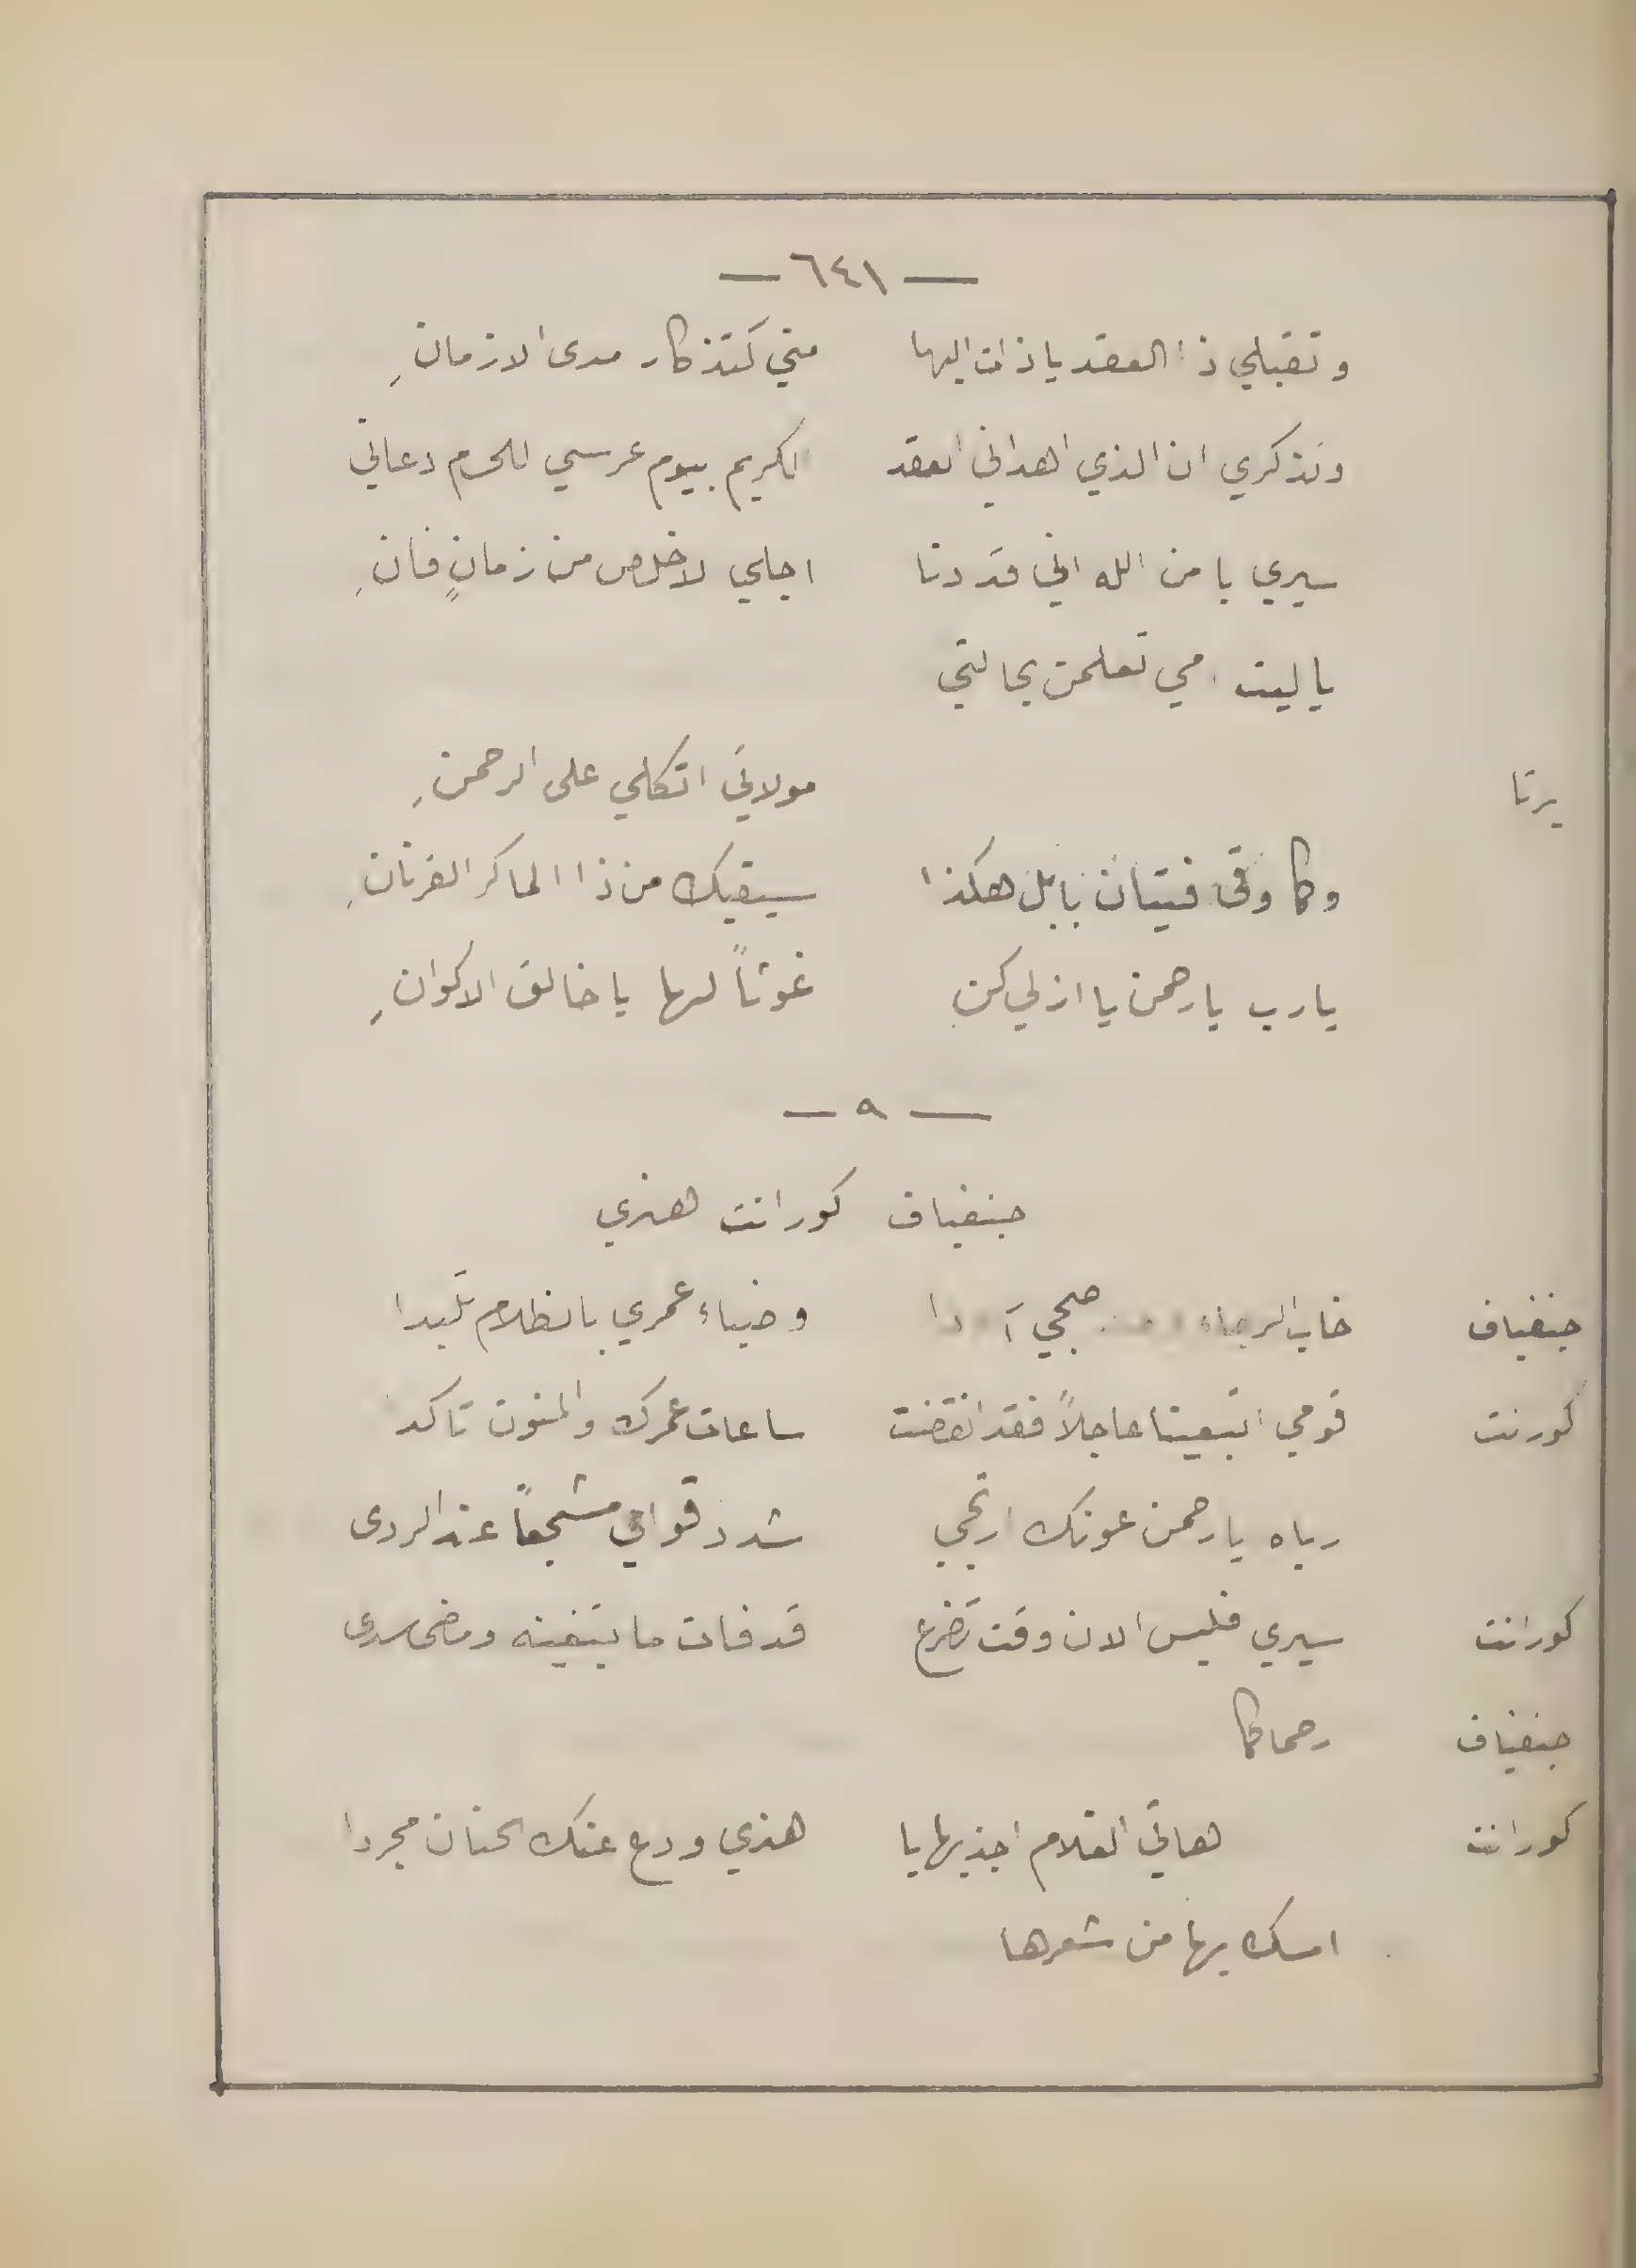 — ٦٤١ —
وتقبلي ذا العقد يا ذات البها مني كتذكار مدى الازمانِ
وتذكري ان الذي اهداني العقد الكريم بيوم عرسي للحرم دعاني
سيري بامن الله اني قد دنا اجلي لاخلص من زمانٍ فانِ
يا ليت امي تعلمن بحالتي
برتا مولاتي اتكلي على الرحمنِ
وكما وقى فتيان بابل هكذا سيقيك من ذا الماكر القرنانِ
يا رب يا رحمن يا ازلي كن غوثاً لها يا خالق الاكوانِ
— ٩ —
جنفياف كورانت هنري
جنفياف خاب الرجاء صبحي وضياء عمري بالظلام تلبدا
كورنت قومي اتبعينا عاجلاً فقد انقضت ساعات عمرك والمنون تاكد
رباه يا رحمن عونك ارتجي شدد قواتي مشجعاً عند الردى
كورانت سيري فليس الان وقت تضرع قد فات ما تبغينه ومضى سدى
جنفياف رحماكما
كورانت هاتي الغلام اجذبها يا هنري ودع عنك الحنان مجردا
امسك بها من شعرها